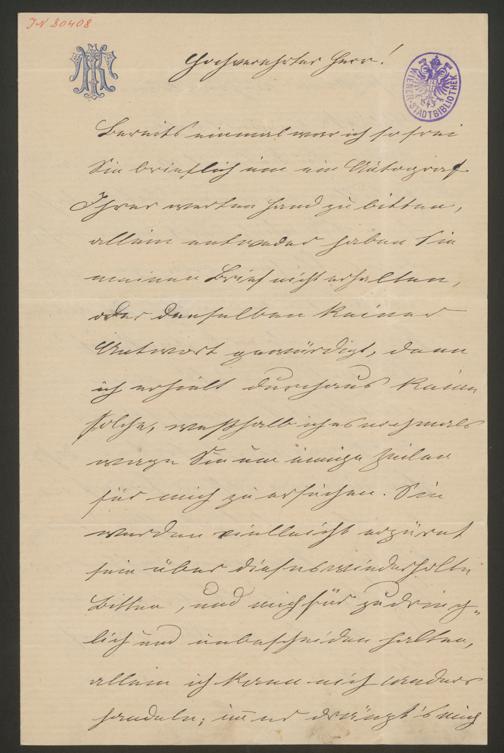 J.N. 30408
WIENER STADTBIBLIOTHEK
Hochverehrter Herr!
Bereits einmal war ich so frei
Sie brieflich um ein Autograf
Ihrer werten Hand zu bitten,
allein entweder haben Sie
meinen Brief nicht erhalten,
oder denselben keiner
Antwort gewürdigt, denn
ich erhielt durchaus keine
solche, weßhalb ich es nochmals
wage Sie um einige Zeilen
für mich zu ersuchen. Sie
werden vielleicht erzürnt
sein über dieses wiederholte
Bitten, und mich für zudring-
lich und unbescheiden halten,
allein ich kann nich anders
handeln; immer drängt's mich